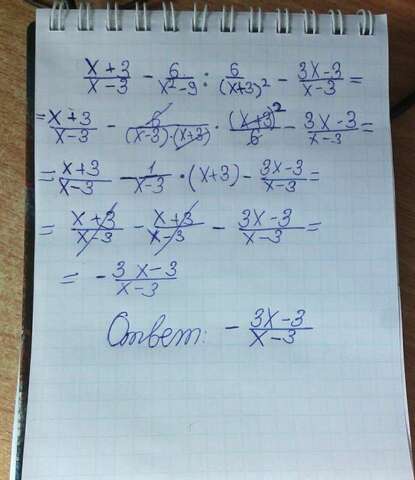 (x+3)/(x-3) - 6/(x²-9) : 6/(x+3)² - (3x-3)/(x-3) =
= (x+3)/(x-3) - 6/((x-3)·(x+3)) · (x+3)²/6 - (3x-3)/(x-3) =
= (x+3)/(x-3) - 1/(x-3) · (x+3) - (3x-3)/(x-3) =
= (x+3)/(x-3) - (x+3)/(x-3) - (3x-3)/(x-3) =
= - (3x-3)/(x-3)
Ответ: - (3x-3)/(x-3)